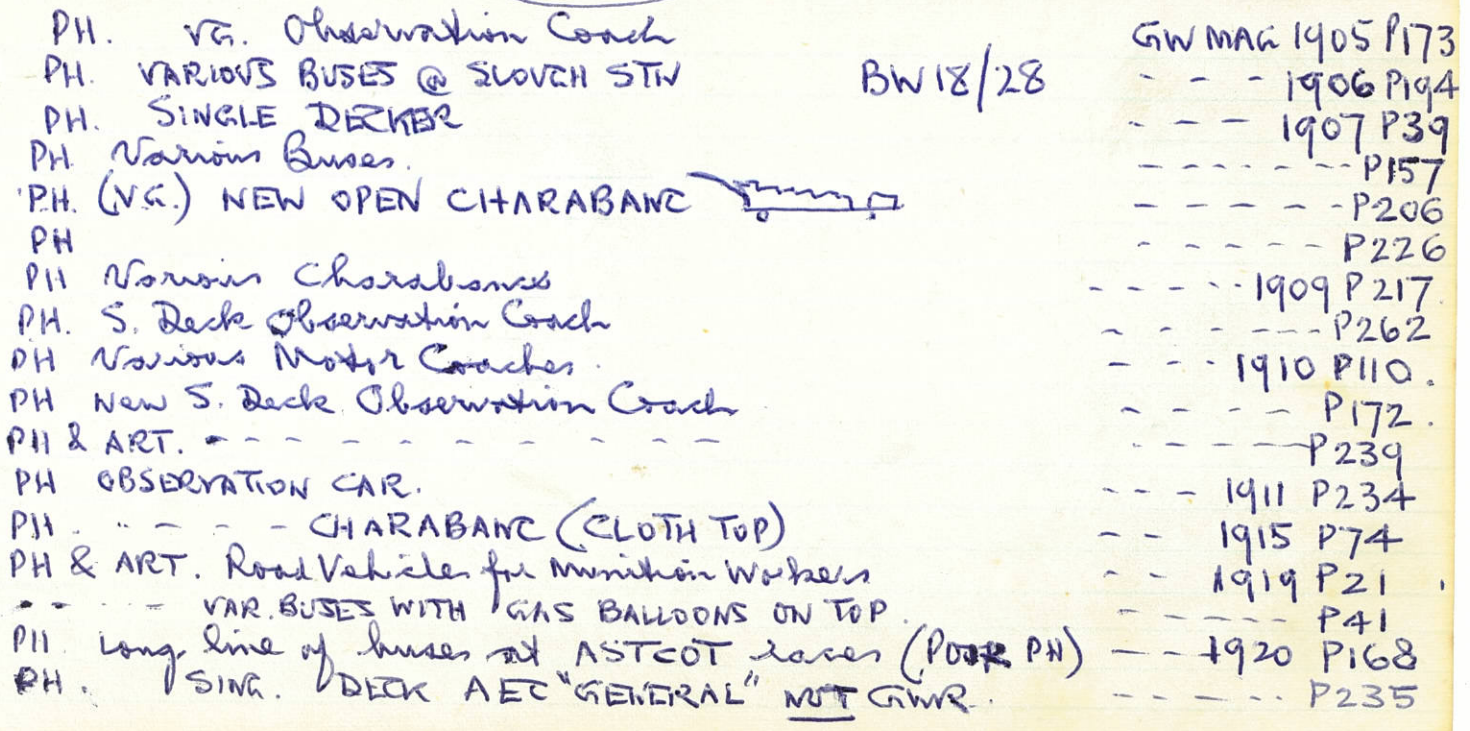 PH. VG. Observation Coach GW MAG 1905 P173
PH. VARIOUS BUSES @ SLOUGH STN BW 18/28 - - - 1906 P194
PH. SINGLE DECKER - - - 1907 P39
PH Various Buses. - - - - - - P157
PH. (V.G.) NEW OPEN CHARABANC - - - - - P206
PH - - - - - P226
PH Various Charabancs - - - - - 1909 P217.
PH. S. Deck Observation Coach - - - - - - P262
PH Various Motor Coaches. - - - 1910 P110.
PH New S. Deck Observation Coach - - - - - P172.
PH & ART. - - - - - - - - - - - - - - P239
PH OBSERVATION CAR. - - - 1911 P234
PH. - - - - CHARABANC (CLOTH TOP) - - 1915 P74
PH & ART. Road Vehicles for Munition Workers - - 1919 P21
- - - - VAR. BUSES WITH GAS BALLOONS ON TOP. - - - - - P41
PH Long line of buses at ASTCOT races (POOR PH) - - 1920 P168
PH. SING. DECK AEC "GENERAL" NOT GWR. - - - - - P235